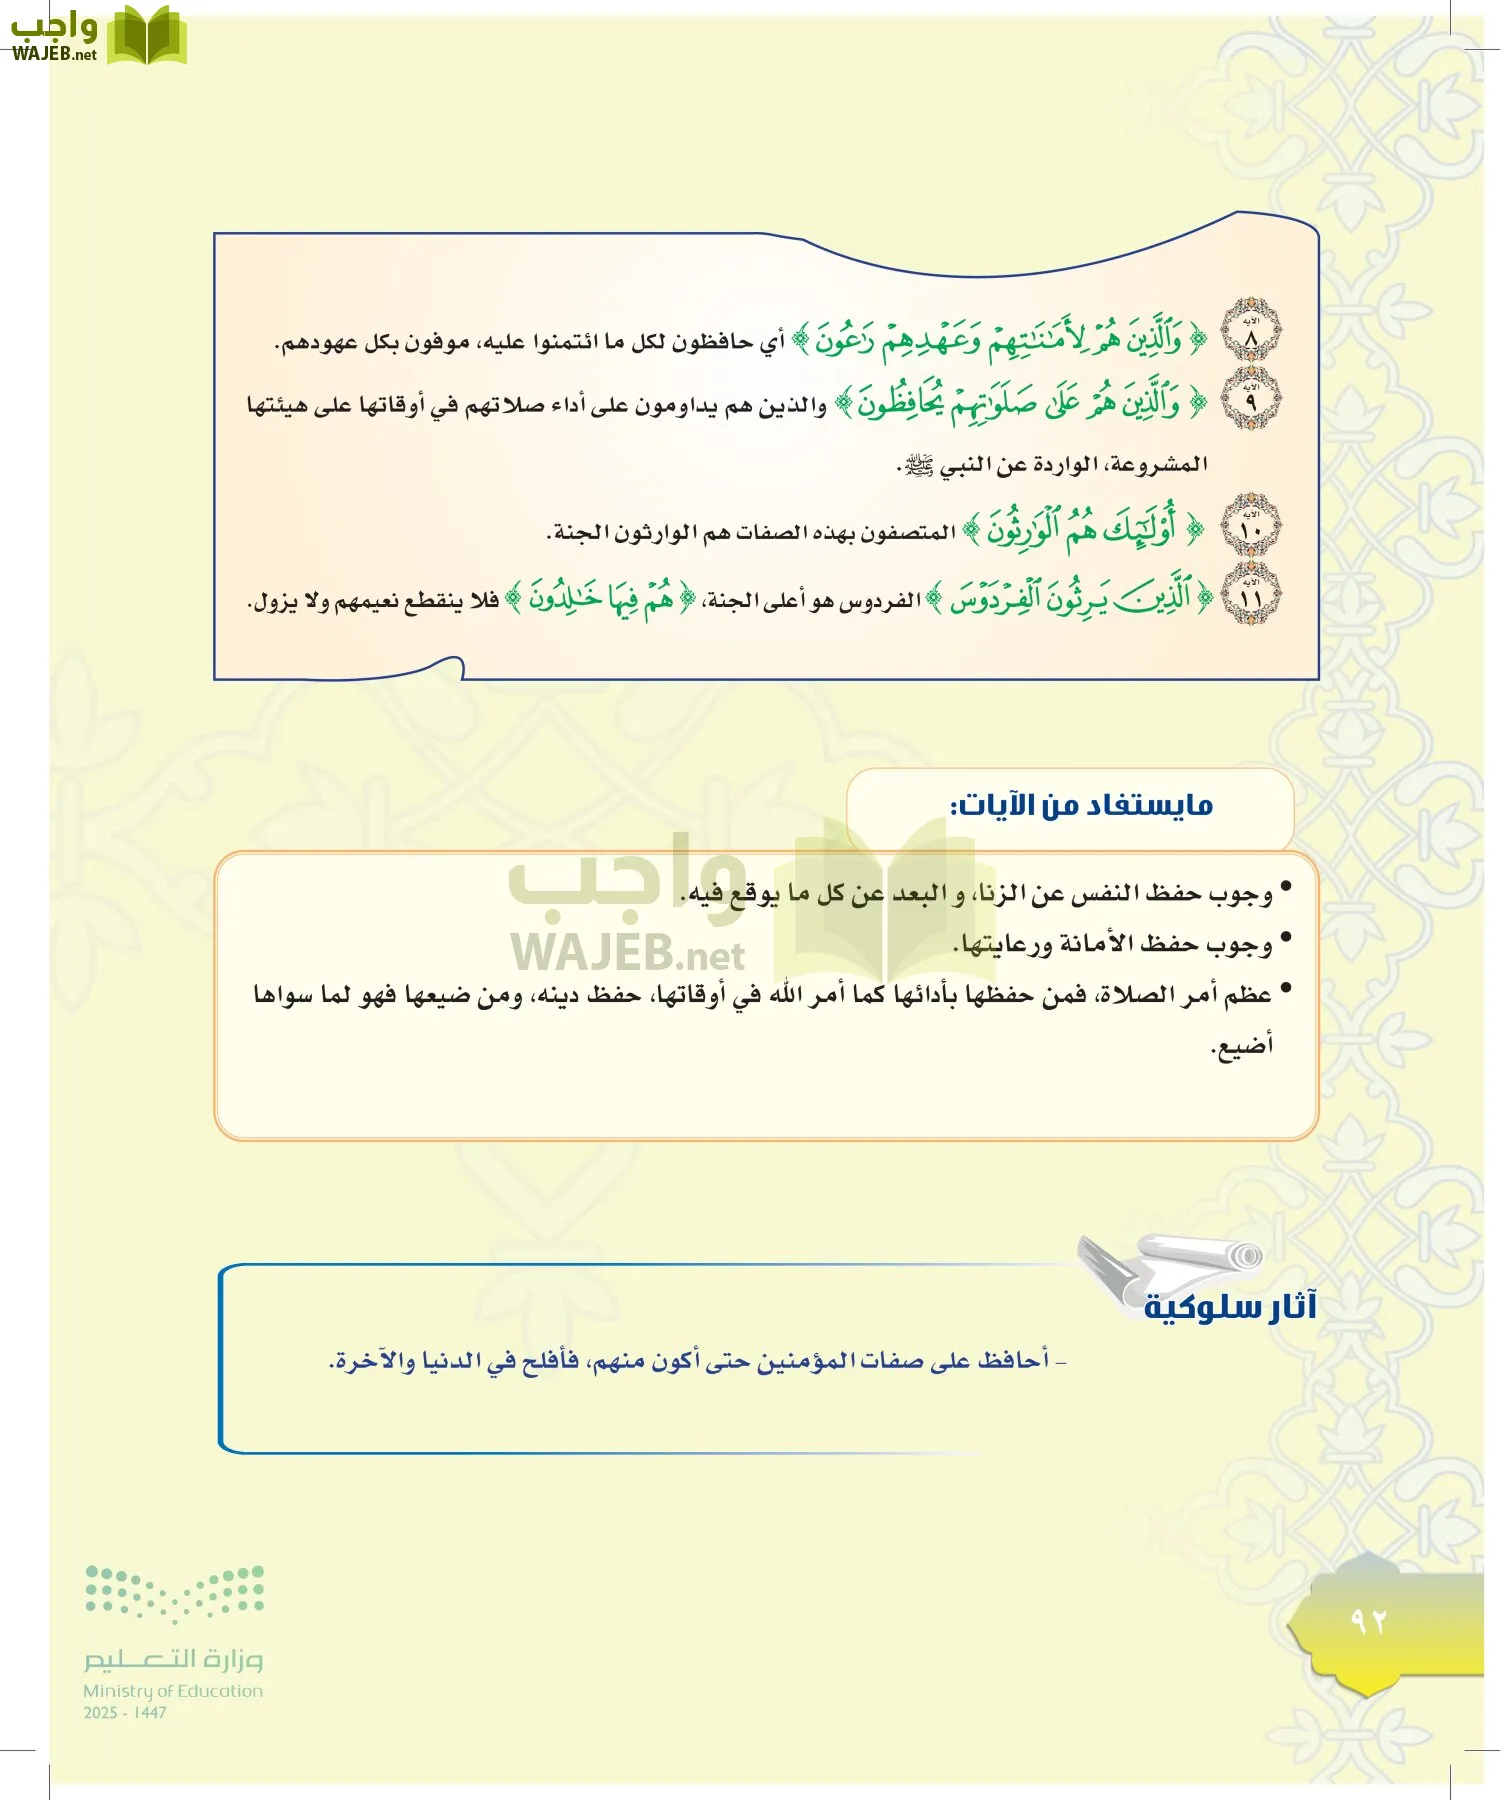 واجب
WAJEB.net
الآية ٨ ﴿ وَٱلَّذِينَ هُمْ لِأَمَٰنَٰتِهِمْ وَعَهْدِهِمْ رَٰعُونَ ﴾ أي حافظون لكل ما ائتمنوا عليه، موفون بكل عهودهم.
الآية ٩ ﴿ وَٱلَّذِينَ هُمْ عَلَىٰ صَلَوَٰتِهِمْ يُحَافِظُونَ ﴾ والذين هم يداومون على أداء صلاتهم في أوقاتها على هيئتها
المشروعة، الواردة عن النبي ﷺ.
الآية ١٠ ﴿ أُوْلَٰٓئِكَ هُمُ ٱلْوَٰرِثُونَ ﴾ المتصفون بهذه الصفات هم الوارثون الجنة.
الآية ١١ ﴿ ٱلَّذِينَ يَرِثُونَ ٱلْفِرْدَوْسَ ﴾ الفردوس هو أعلى الجنة، ﴿ هُمْ فِيهَا خَٰلِدُونَ ﴾ فلا ينقطع نعيمهم ولا يزول.
مايستفاد من الآيات:
• وجوب حفظ النفس عن الزنا، و البعد عن كل ما يوقع فيه.
• وجوب حفظ الأمانة ورعايتها.
• عظم أمر الصلاة، فمن حفظها بأدائها كما أمر الله في أوقاتها، حفظ دينه، ومن ضيعها فهو لما سواها
أضيع.
واجب
WAJEB.net
آثار سلوكية
– أحافظ على صفات المؤمنين حتى أكون منهم، فأفلح في الدنيا والآخرة.
٩٢
وزارة التعليم
Ministry of Education
2025 - 1447